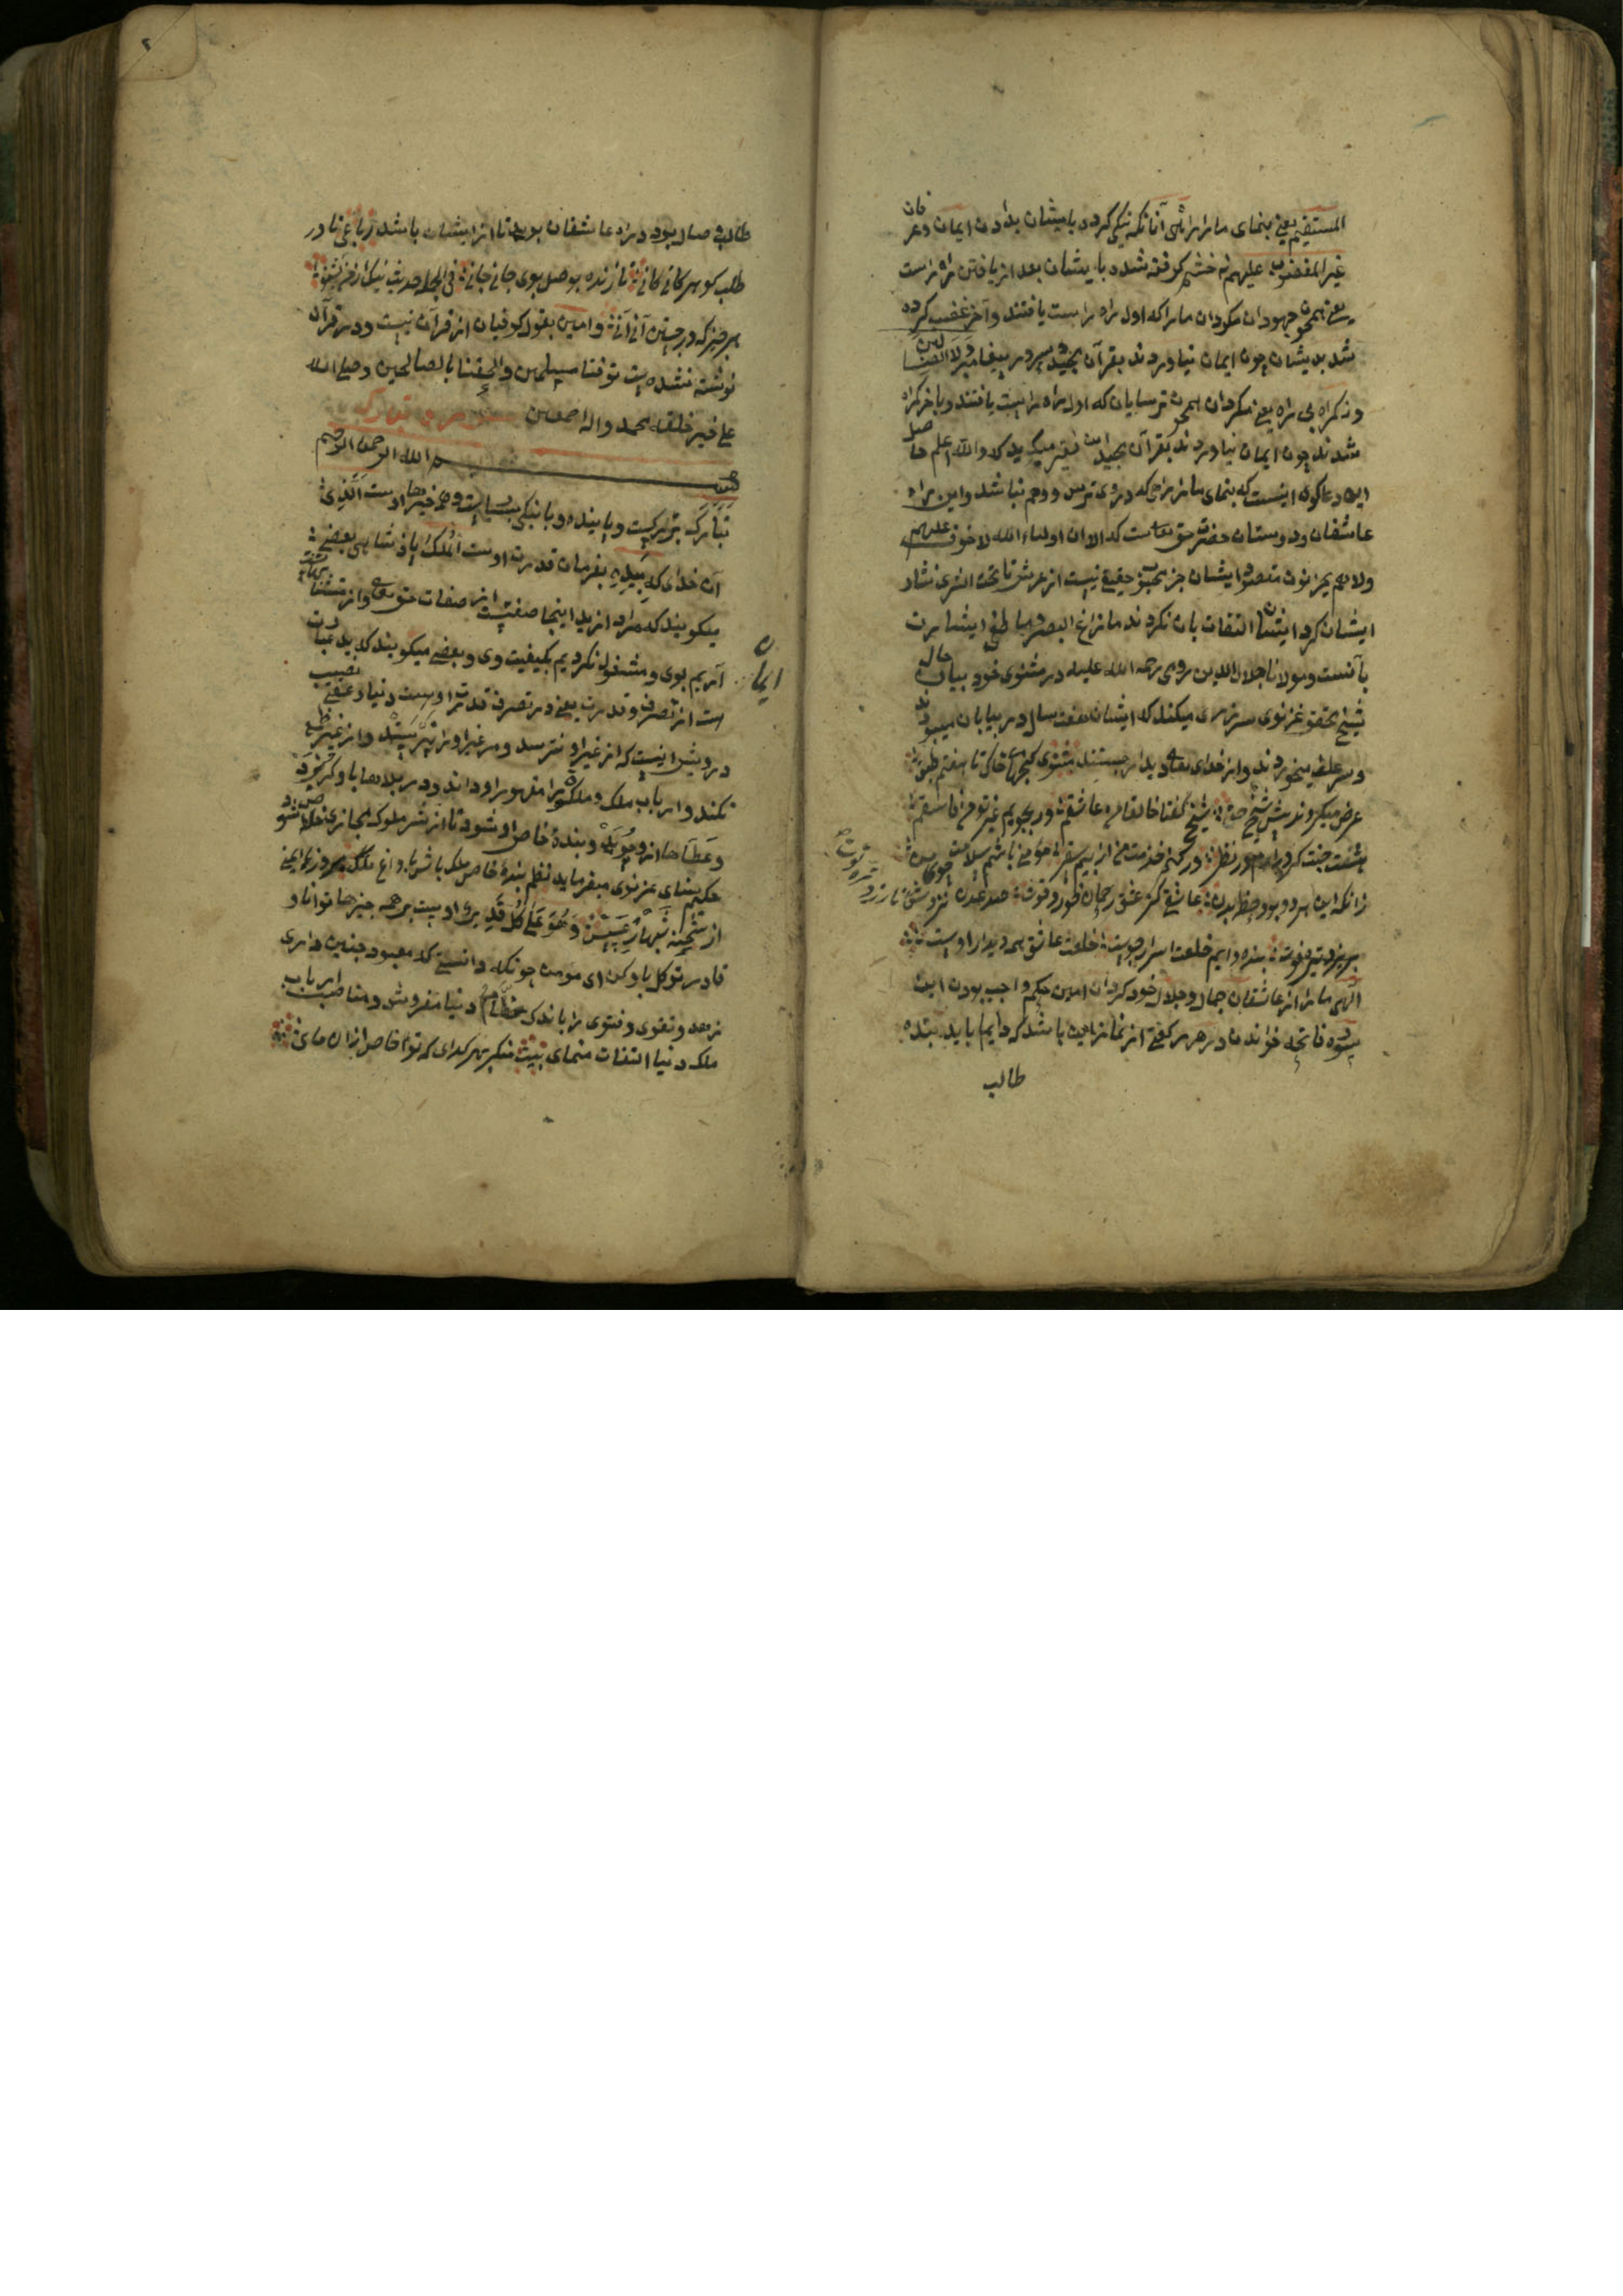 المستقیم یعنی بنمای ما را راه راستی آنانکه نیکی کرده بایشان بدادن ایمان وعرفان
غیر المغضوب علیهم نه خشم کرفته شده بایشان بعد از یافتن راه راست
یعنی همچون جهودان مکردان ما را که اول راه راست یافتند وآخر غضب کرده
شد بدیشان چون ایمان نیاوردند بقرآن مجید وبر پیغامبر ولا الضالین
ونه کمراه بی راه یعنی مکردان همچون ترسایان که اول راه راست یافتند وباخر کمراه
شدند چون ایمان نیاوردند بقرآن مجید این فقیر میکوید که والله اعلم حاصل
این دعا کوی اینست که بنمای ما را راهی که دروی ترس ووهم نباشد واین راه
عاشقان ودوستان حضرت حق تعالی است که الا ان اولیاء الله لا خوف علیهم
ولا هم یحزنون مقصود ایشان جز محبوب حقیقی نیست از عرش تا تحت الثری نثار
ایشان کرد ایشان التفات بان نکردند ما زاغ البصر وما طغی اشارت
بآنست ومولانا جلال الدین رومی رحمه الله علیه در مثنوی خود بیان حال
شیخ محمد غزنوی سررزی میکند که ایشان هفت سال در بیابان میبودند
وسر علف میخوردند واز خدای تعالی دیدار میجستند مثنوی کنجهای خاک تا هفتم طبق
عرض میکردند پیش شیخ حق شیخ کفتا خالقا من عاشقم ور بجویم غیر تو من فاسقم
هشت جنت کر در آرم در نظر ور کنم خدمت من از بیم سقر مؤمنی باشم سلامت جوی من
زانکه این هر دو بود حظ بدن عاشقی کز عشق رحمان خورد قوت صد بدن پیشش نیرزد تره توت
بنده دایم خلعت ادرار جوست خلعت عاشق همه دیدار اوست
الهی ما را از عاشقان جمال وجلال خود کردان امین حکم واجب بودن این
سوره فاتحه خواندن در هر رکعتی از نماز این باشد که دایما باید بنده
طالب
طالب وصال بود در راه عاشقان بوید تا از ایشان باشد رباعی تا در
طلب کوهر کانی کانی تا زنده بوصل بوی جانی جانی فی الجمله حدیث نیک از من بشنو
هر چیز که در جستن آنی آنی وامین بقول کوفیان از قرآن نیست ودر قرآن
نوشته نشده است توفنا مسلمین والحقنا بالصالحین وصلی الله
علی خیر خلقه محمد واله اجمعین
بسم الله الرحمن الرحیم
تبارک بزرکست وپاینده وبا نیکی بسیارست وهمه خیرها اوست الذی
آن خدای که بیده بفرمان قدرت اوست الملک پادشاهی بعضی
میکویند که مراد از ید اینجا صفتیست از صفات حق تعالی
آریم بوی ومشغول نکردیم بکیفیت وی وبعضی میکویند که ید عبارت
ایمان
است از تصرف وقدرت یعنی در تصرف قدرت اوست دنیا وعقبی نصیب
درویش اینست که از غیر او نترسد ومر غیر او را نپرستد واز غیر طمع
نکند وارباب ملک وملکوت را مقهور او داند ودر بلاها باو کریزد
وعطاها از او جوید وبنده خاص او شود تا از شر ملوک مجازی خلاص شود
حکیم سنای غزنوی میفرماید نظم بنده خاص ملک باش که با داغ ملک روزها ایمنی
از شحنه وشبها ز عسس وهو علی کل قدیر او بیست بر همه چیزها توانا و
قادر توکل باو کن ای مومن چونکه دانستی که معبود چنین داری
زهد وتقوی وفتوی را باندک حطام دنیا مفروش ومناصب ارباب
ملک دنیا التفات منمای بیت منکر بهر کدای که تو خاص ازان مای